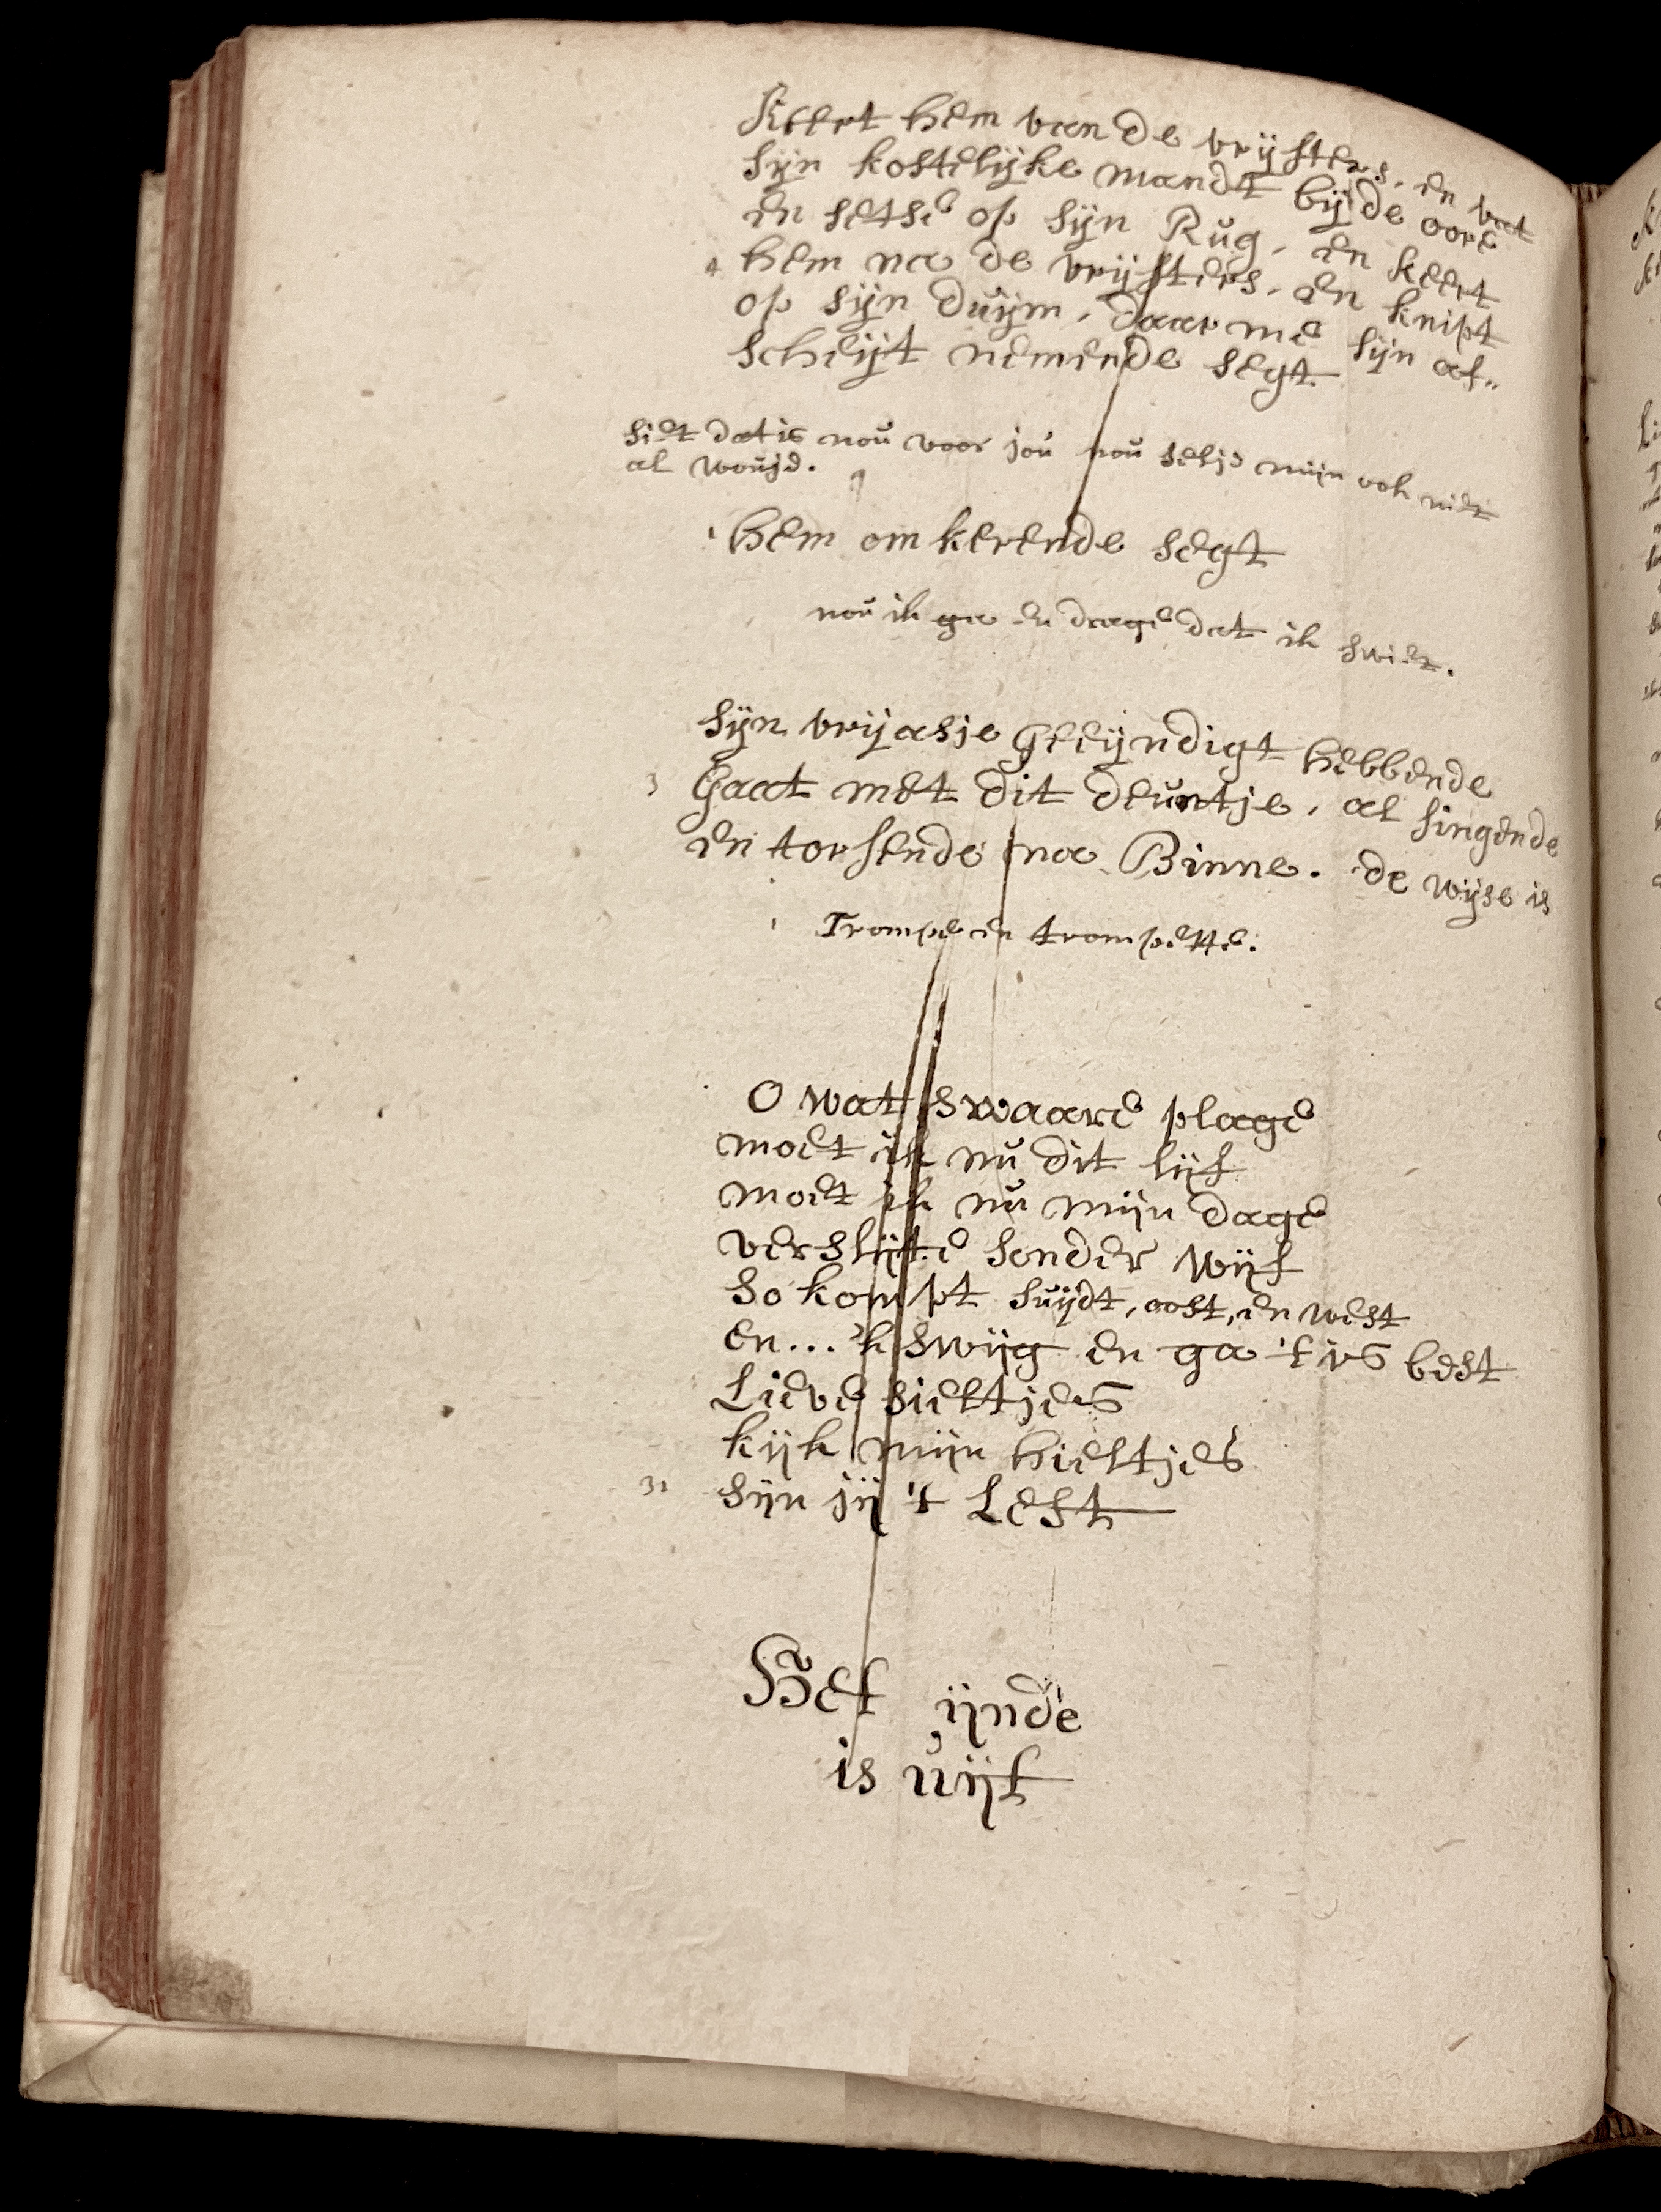 Keert hem van de vrijsters, en vat
sijn kostelijke mandt bij de oore
en setse op sijn Rug, en keert
4 hem na de vrijsters, en knipt
op sijn duijm, daar me sijn af-
scheijt nemende segt
siet dat is nou voor jou nou selje mijn ook niet
al wouje.
1 hem omkerende segt
nou ik ga en drage dat ik swiet.
sijn vrijasje geeijndigt hebbende
3 Gaat met dit deuntje, al singende
en torsende na Binne. de wijse is
1 Trompe en trompette.
O wat sware plage
moet ik nu dit lijf
moet ik nu mijn dage
verslijte sonder wijf
so kompt suijdt, oost, en west
en... 'k swijg en ga 't is best
Lieve sieltjes
kijk mijn hieltjes
31 sijn jij 't Lest
Het ijnde
is uijt